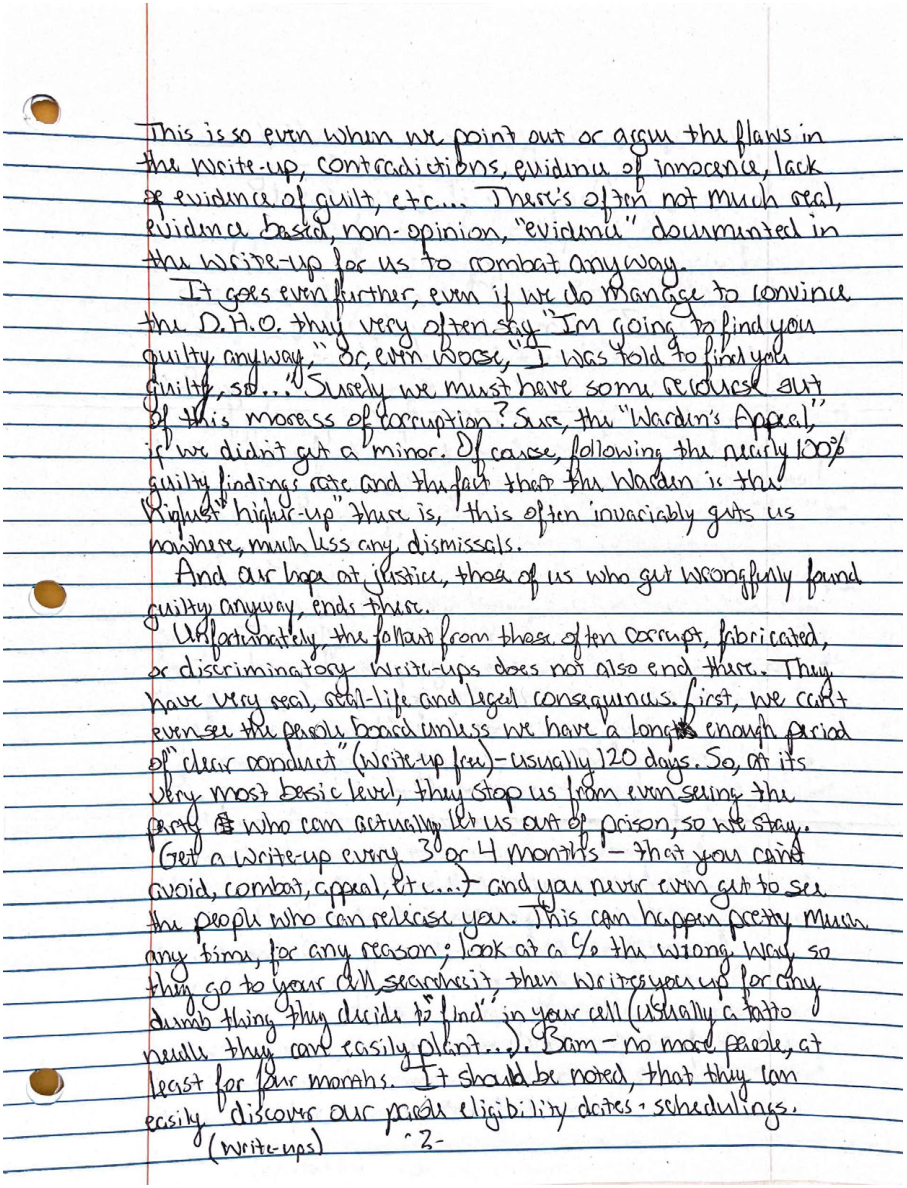 This is so even when we point out or argue the flaws in
the write-up, contradictions, evidence of innocence, lack
of evidence of guilt, etc.... There's often not much real,
evidence based, non-opinion, "evidence" documented in
the write-up for us to combat anyway.
It goes even further, even if we do manage to convince
the D.H.O. they very often say "I'm going to find you
guilty anyway," or, even worse, "I was told to find you
guilty, so..." Surely we must have some recourse out
of this morass of corruption? Sure, the "Warden's Appeal",
if we didn't get a minor. Of course, following the nearly 100%
guilty findings rate and the fact that the Warden is the
highest "higher-up" there is, this often invariably gets us
nowhere, much less any dismissals.
And our hope at justice, those of us who get wrongfully found
guilty anyway, ends there.
Unfortunately, the fallout from these often corrupt, fabricated,
or discriminatory write-ups does not also end there. They
have very real, real-life and legal consequences. First, we can't
even see the parole board unless we have a long enough period
of "clear conduct" (write-up free) - usually 120 days. So, at its
very most basic level, they stop us from even seeing the
party who can actually let us out of prison, so we stay.
Get a write-up every 3 or 4 months - that you can't
avoid, combat, appeal, etc....- and you never even get to see
the people who can release you. This can happen pretty much
any time, for any reason; look at a C/O the wrong way, so
they go to your cell, searches it, then writes you up for any
dumb thing they decide to "find" in your cell (usually a tatto
needle they can easily plant...). Bam - no more parole, at
least for four months. It should be noted, that they can
easily discover our parole eligibility dates + schedulings.
(write-ups) -2-